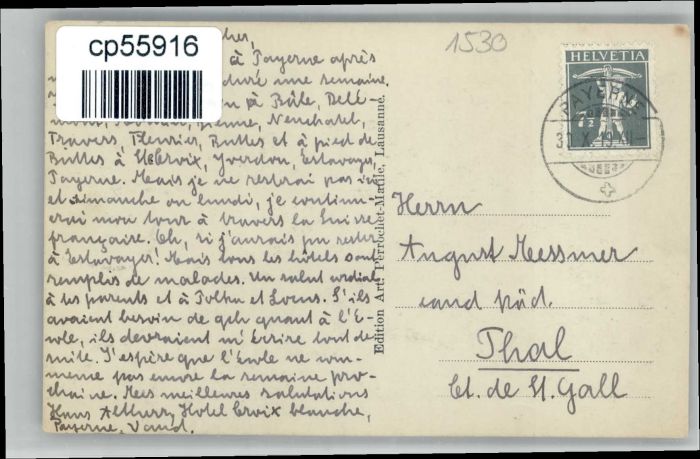 cp55916
1530
HELVETIA
7½
PAYERNE
à Payerne après
duré une semaine,
à Bâle, Delé-
Bienne, Neuchatel,
Travers, Fleurier, Buttes et à pied de
Buttes à St Croix, Yverdon, Estavayer,
Payerne. Mais je ne resterai pas ici
et dimanche ou lundi, je continu-
erai mon tour à travers la Suisse
française. Oh, si j'aurais pu rester
à Estavayer! Mais tous les hôtels sont
remplis de malades. Un salut cordial
à tes parents et à et Louis. S'ils
avaient besoin de qch quant à l'é-
cole, ils devraient m'écrire tout de
suite. J'espère que l'école ne com-
mence pas encore la semaine pro-
chaine. Mes meilleures salutations
Hans Hotel Croix blanche,
Payerne, Vaud.
Edition Art. Perrochet-Matile, Lausanne.
Herrn
August Messmer
cand päd.
Thal
Ct. de St. Gall